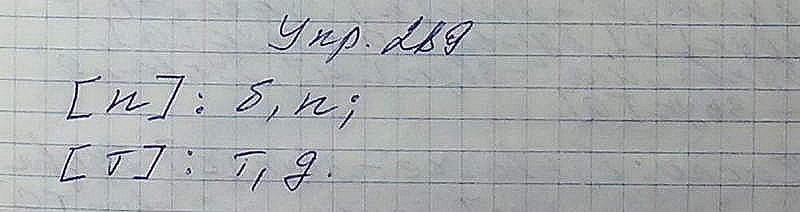 Упр. 289
[п]: б, п;
[т]: т, д.